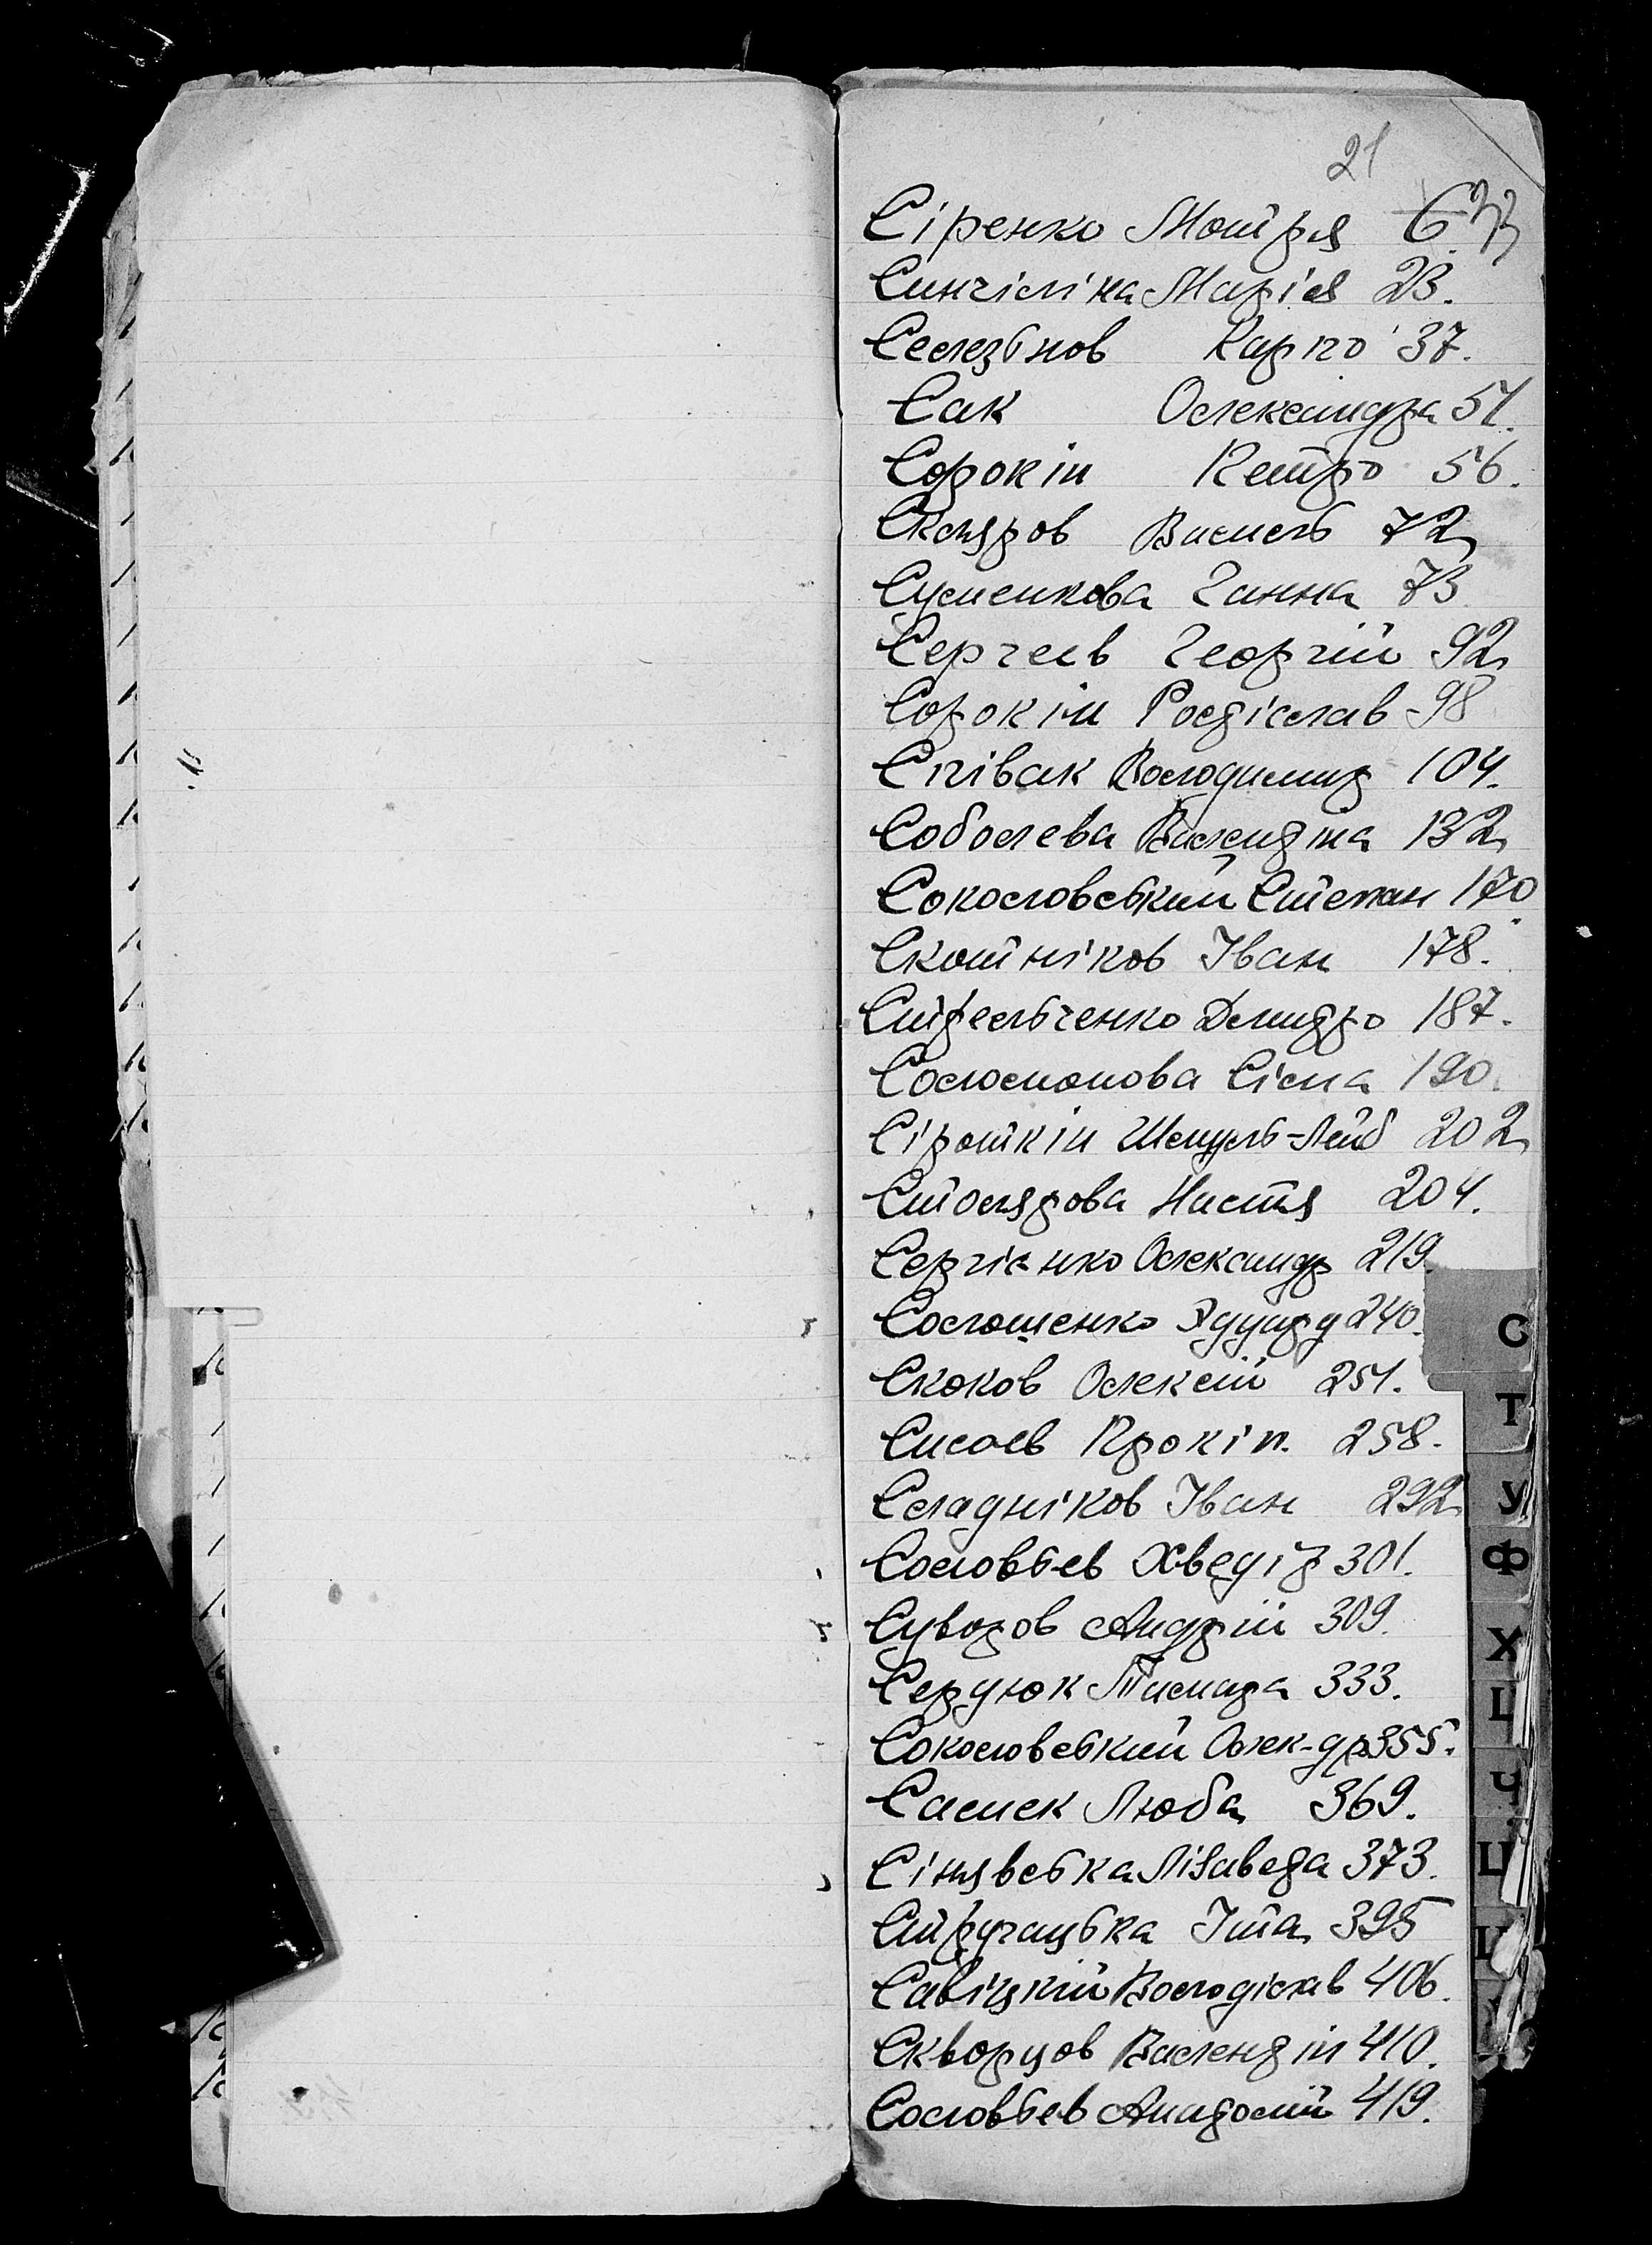 21
Сіренко Мотря 6.
Синчіліна Марія 23.
Селезьнов Карпо 37.
Сак Олександра 51.
Сорокін Петро 56.
Скляров Василь 72
Суменкова Ганна 73
Сергеєв Георгій 92
Сорокін Росдіслав 98
Співак Володимир 104.
Соболева Валендтна 132
Соколовський Степан 170
Скотніков Іван 178.
Стрельченко Дмидро 187.
Соломонова Сіма 190.
Сіроткін Шемуль-Лейб 202
Столярова Настя 204.
Сергієнко Олександр 219.
Солошенко Едуард 240.
Скоков Олексій 251.
Сисоєв Прокіп. 258.
Сладніков Іван 292
Соловьєв Хведір 301.
Суворов Андрій 309.
Сердюк Тамара 333.
Соколовський Олек-др 355.
Саммек Люба 369.
Сінявська Лізаведа 373.
Стругацька Іта 395
Савіцкій Володіслав 406.
Скворцов Валендін 410.
Соловьєв Анадолій 419.
С
Т
У
Ф
Х
Ц
Ч